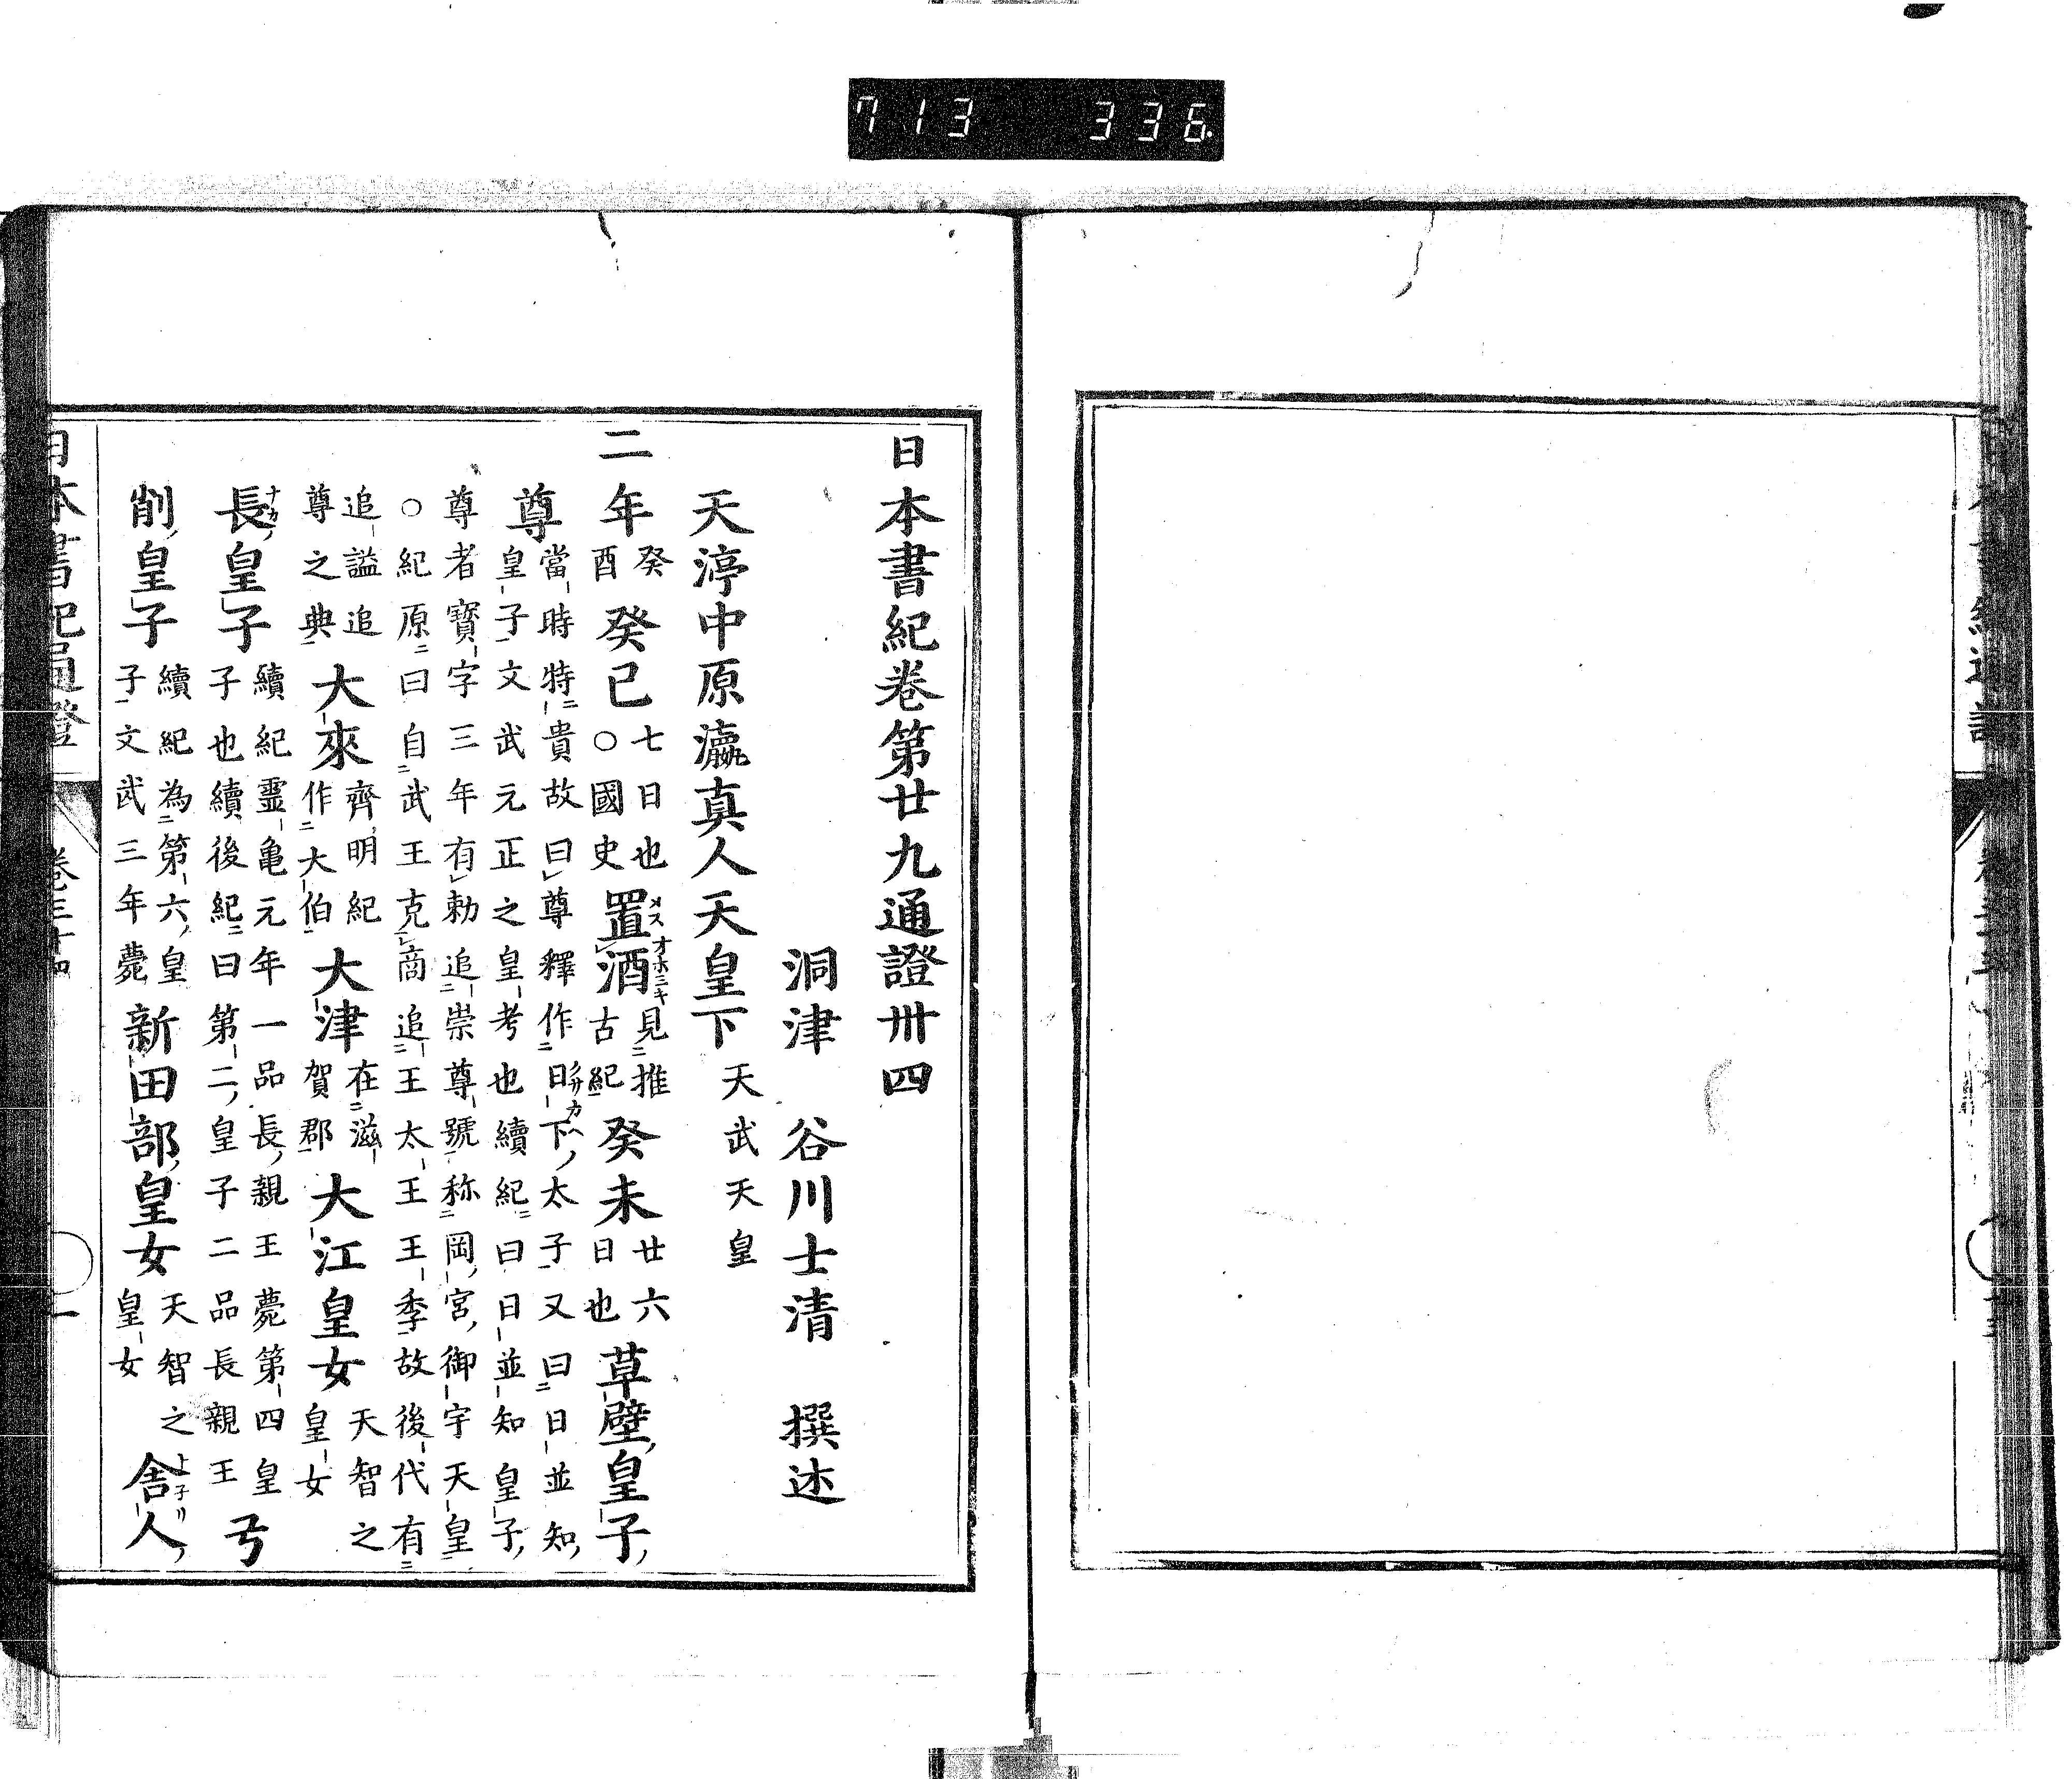 713 336
日本書紀卷第廿九通證卅四
洞津 谷川士清 撰述
天渟中原瀛真人天皇下 天武天皇
二年 癸酉 癸巳 七日也○國史 置酒 メス オホミキ 見推古紀 癸未 廿六日也 草壁皇子
尊 當時特貴故曰尊釋作日下太子又曰日並知
皇子文武元正之皇考也續紀曰日並知皇子
尊者寶字三年有勅追崇尊號称岡宮御宇天皇
○紀原曰自武王克商追王太王王季故後代有
追謚追尊之典 大來 齊明紀作大伯 大津 在滋賀郡 大江皇女 天智之皇女
長皇子 ナカ 續紀靈亀元年一品長親王薨第四皇子也續後紀曰第二皇子二品長親王 弓
削皇子 續紀為第六皇子文武三年薨 新田部皇女 天智之皇女 舍人
日本書紀通證 卷三十四 一